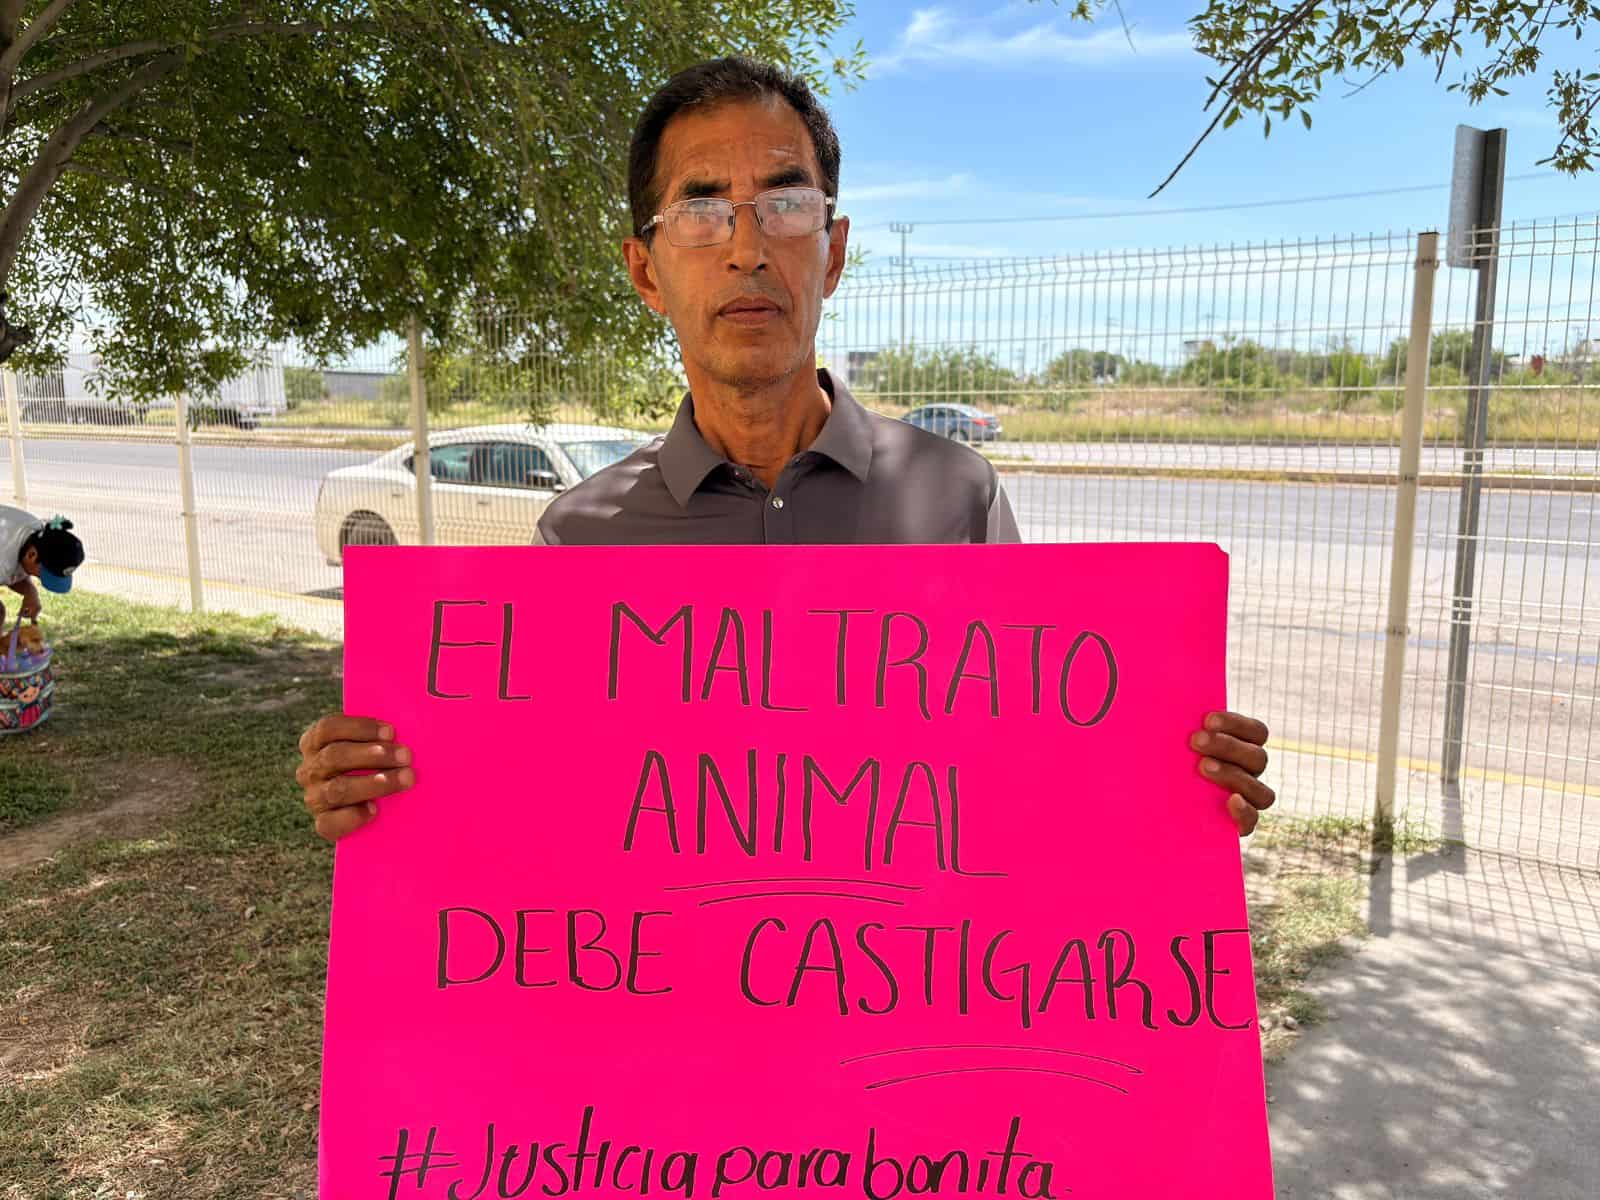 EL MALTRATO
ANIMAL
DEBE CASTIGARSE
#Justiciaparabonita